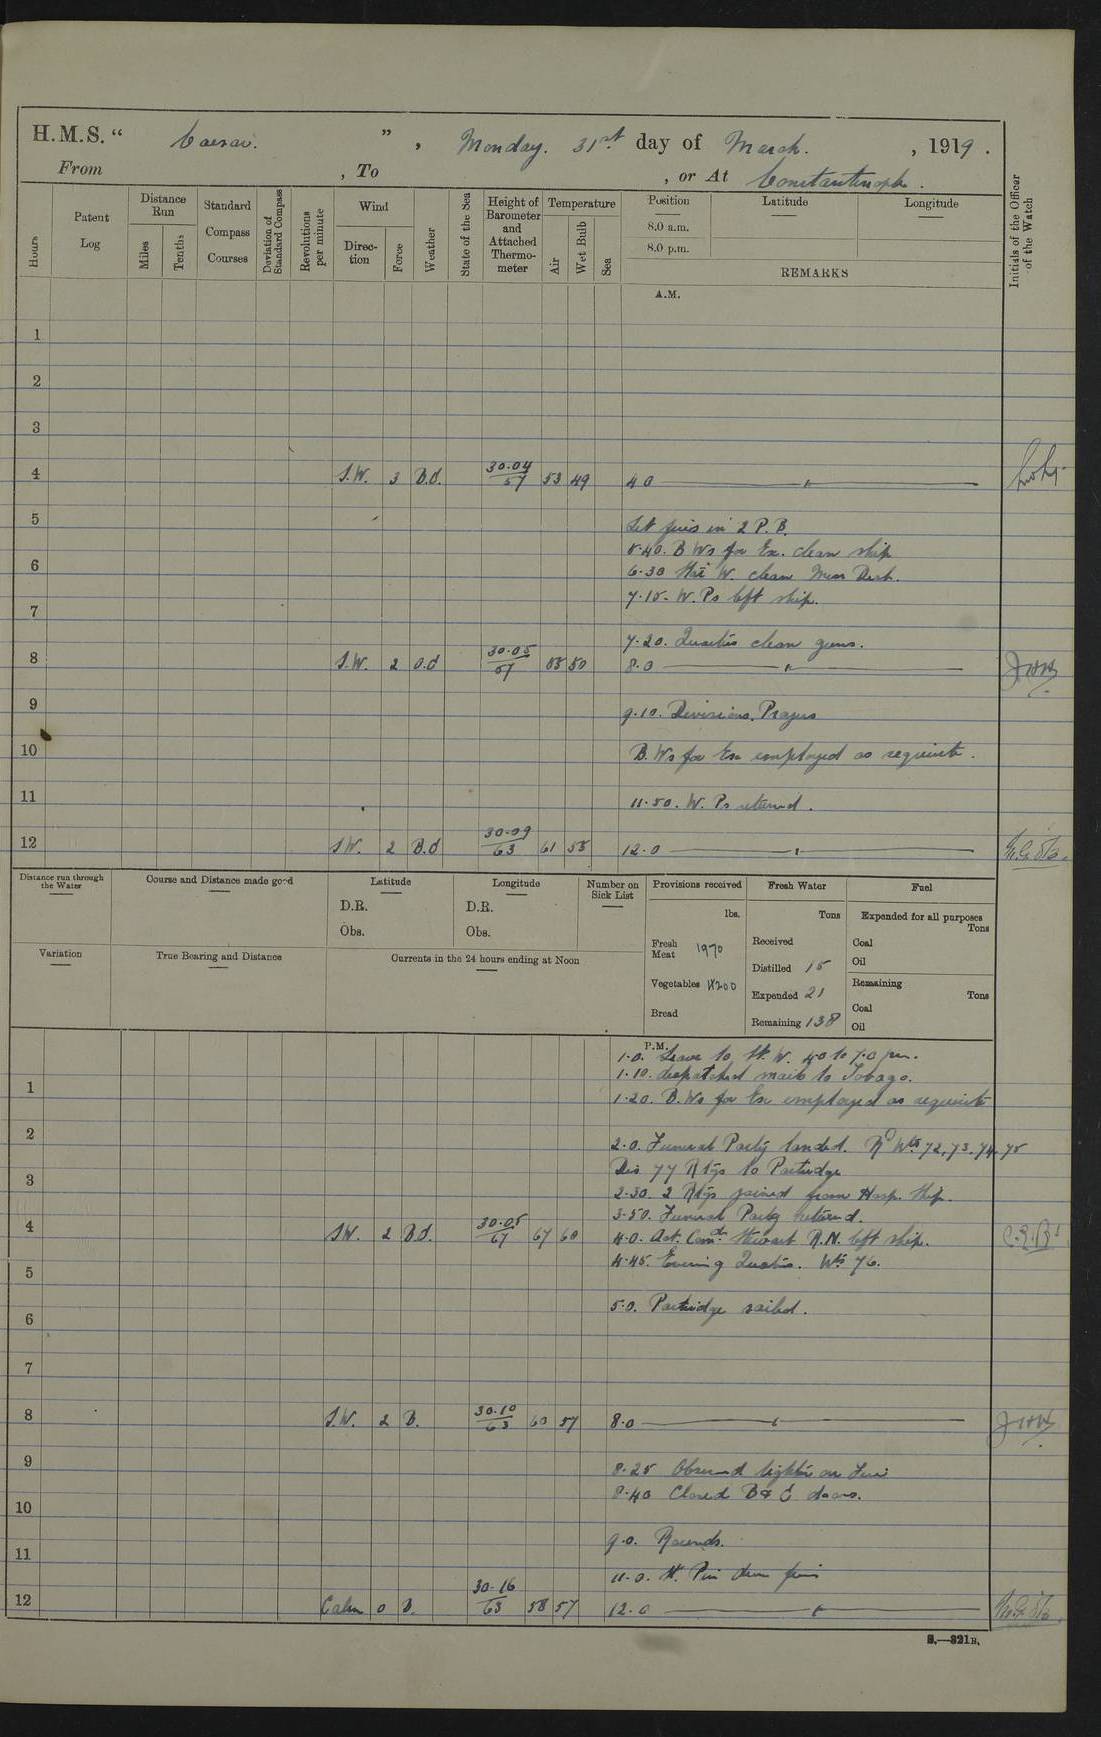 H.M.S. “ Caesar. ” , Monday. 31st. day of March. , 1919 .
From , To , or At Constantinople .
Hours
Patent Log
Distance Run
Miles
Tenths
Standard Compass Courses
Deviation of Standard Compass
Revolutions per minute
Wind
Direction
Force
Weather
State of the Sea
Height of Barometer and Attached Thermometer
Temperature
Air
Wet Bulb
Sea
Position
8.0 a.m.
8.0 p.m.
Latitude
Longitude
REMARKS
Initials of the Officer of the Watch
A.M.
1
2
3
4 S.W. 3 B.d. 30.04 57 53 49 4 0 "
5
Lit fires in 2 P.B.
5.40. B Ws for Ex. clean ship
6
6.30 W. clean Mess Deck.
7.15. W. Ps left ship.
7
7.20. Quarters clean guns.
8 S.W. 2 O.d 30.05 57 55 50 8.0 "
9
9.10. Divisions. Prayers
10
B. Ws for Ex employed as requisite.
11
11.50. W. Ps returned.
12 S.W. 2 B.d 30.09 63 61 55 12.0 "
Distance run through the Water
Course and Distance made good
Latitude
D.R.
Obs.
Longitude
D.R.
Obs.
Number on Sick List
Provisions received
lbs.
Fresh Meat 1970
Vegetables
Bread
Fresh Water
Tons
Received
Distilled 15
Expended 21
Remaining 138
Fuel
Expended for all purposes
Tons
Coal
Oil
Remaining
Tons
Coal
Oil
Variation
True Bearing and Distance
Currents in the 24 hours ending at Noon
P.M.
1.0. Leave to W. 4.0 to 7.0 pm.
1.10. despatched mails to Tobago.
1
1.20. B. Ws for Ex employed as requisite
2
2.0. Funeral Party landed. Rd Wts 72, 73, 74, 75
Dis 77 Rtgs to Partridge
3
2.30. 2 Rtgs joined from Hosp. Ship.
3.50. Funeral Party returned.
4 S.W. 2 B.d. 30.05 67 67 60 4.0. Act. Comd. Stewart R.N. left ship.
4.45. Evening Quarters. Wts 76.
5
5.0. Partridge sailed.
6
7
8 S.W. 2 B. 30.10 63 60 57 8.0 "
9
8.25 Observed lighter on Fire
8.40 Closed B & C doors.
10
9.0. Rounds.
11
11.0.
12 Calm 0 B. 30.16 63 58 57 12.0 "
S.—321B.